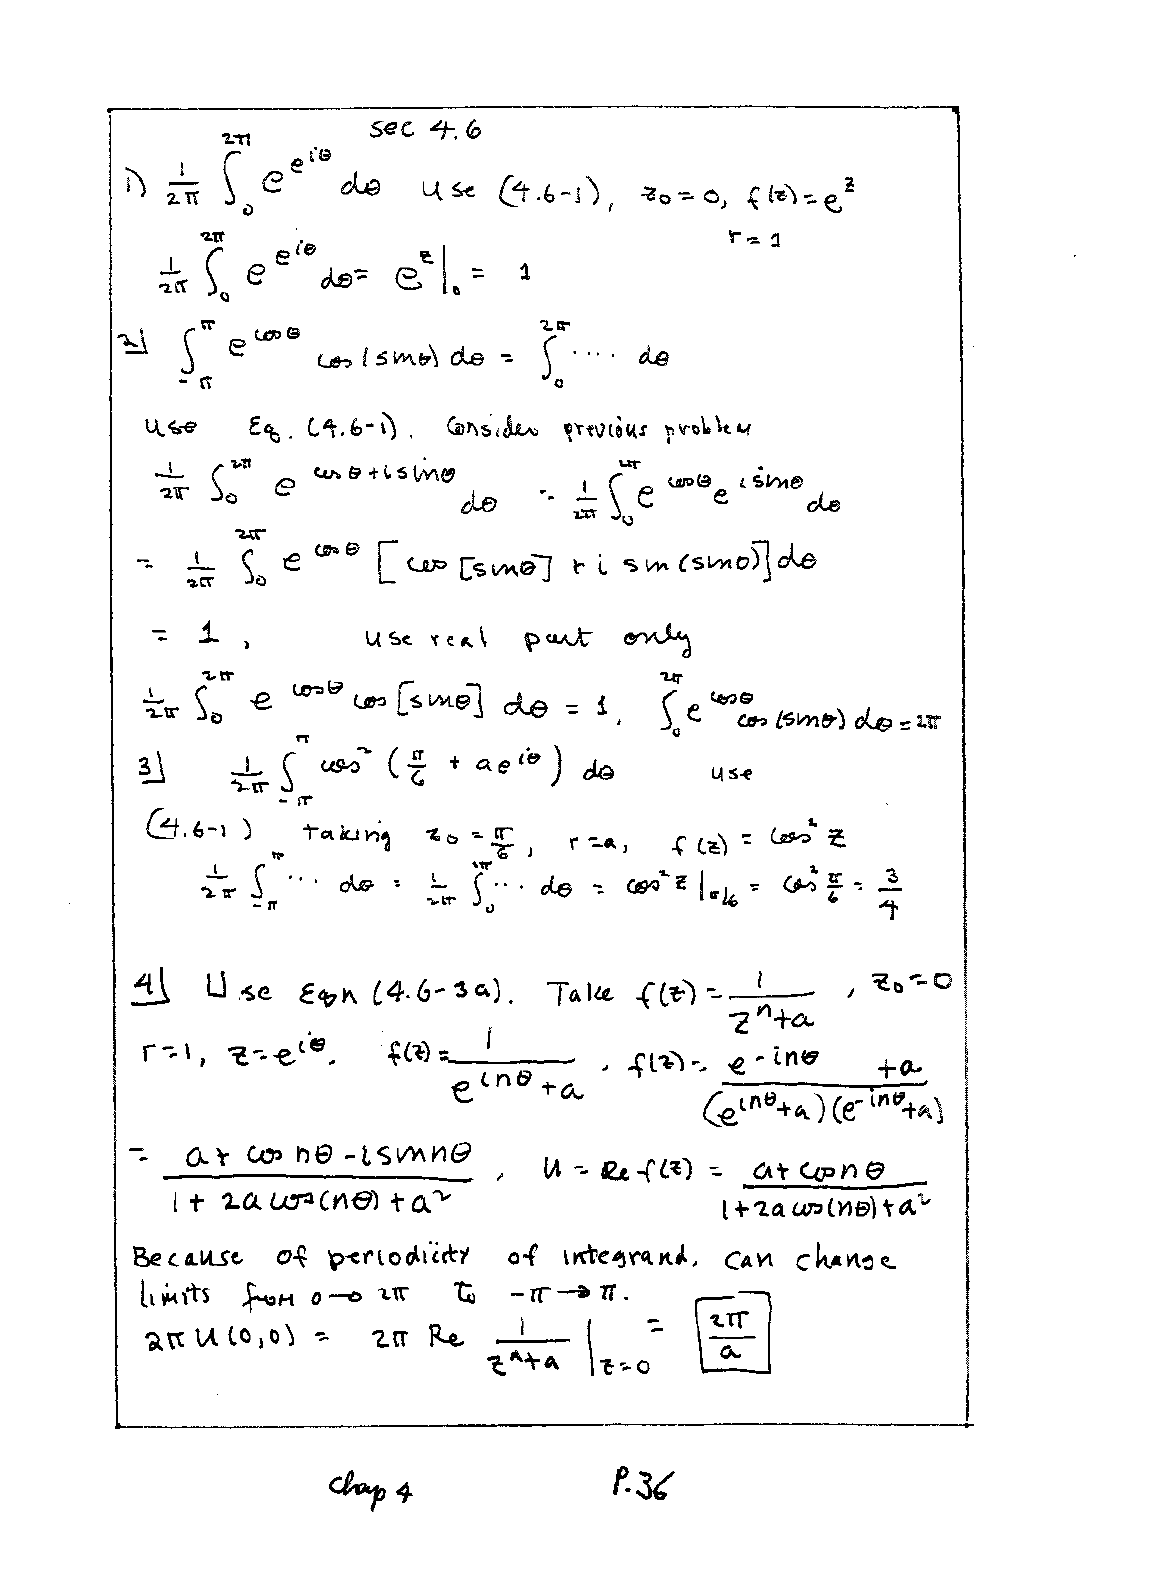 sec 4.6
1) 1/2π ∫₀^2π e^(e^(iθ)) dθ use (4.6-1), z₀=0, f(z)=e^z
r=1
1/2π ∫₀^2π e^(e^(iθ)) dθ = e^z|₀ = 1
2) ∫_-π^π e^(cosθ) cos(sinθ) dθ = ∫₀^2π .... dθ
use Eq. (4.6-1). Consider previous problem
1/2π ∫₀^2π e^(cosθ+i sinθ) dθ = 1/2π ∫₀^2π e^(cosθ) e^(i sinθ) dθ
= 1/2π ∫₀^2π e^(cosθ) [cos[sinθ] + i sin(sinθ)] dθ
= 1, use real part only
1/2π ∫₀^2π e^(cosθ) cos[sinθ] dθ = 1, ∫₀^2π e^(cosθ) cos(sinθ) dθ = 2π
3) 1/2π ∫_-π^π cos²(π/6 + ae^(iθ)) dθ use
(4.6-1) taking z₀ = π/6, r=a, f(z) = cos² z
1/2π ∫_-π^π ... dθ = 1/2π ∫₀^2π ... dθ = cos² z|π/6 = cos² π/6 = 3/4
4) Use Eqn (4.6-3a). Take f(z) = 1/(z^n+a), z₀=0
r=1, z=e^(iθ). f(z) = 1/(e^(inθ)+a), f(z) = (e^(-inθ) +a)/((e^(inθ)+a)(e^(-inθ)+a))
= (a+cos nθ - i sin nθ)/(1+2a cos(nθ)+a²), u = Re f(z) = (a+cos nθ)/(1+2a cos(nθ)+a²)
Because of periodicity of integrand, can change
limits from 0→2π to -π→π.
2π u(0,0) = 2π Re 1/(z^n+a) |z=0 = 2π/a
Chap 4 P.36